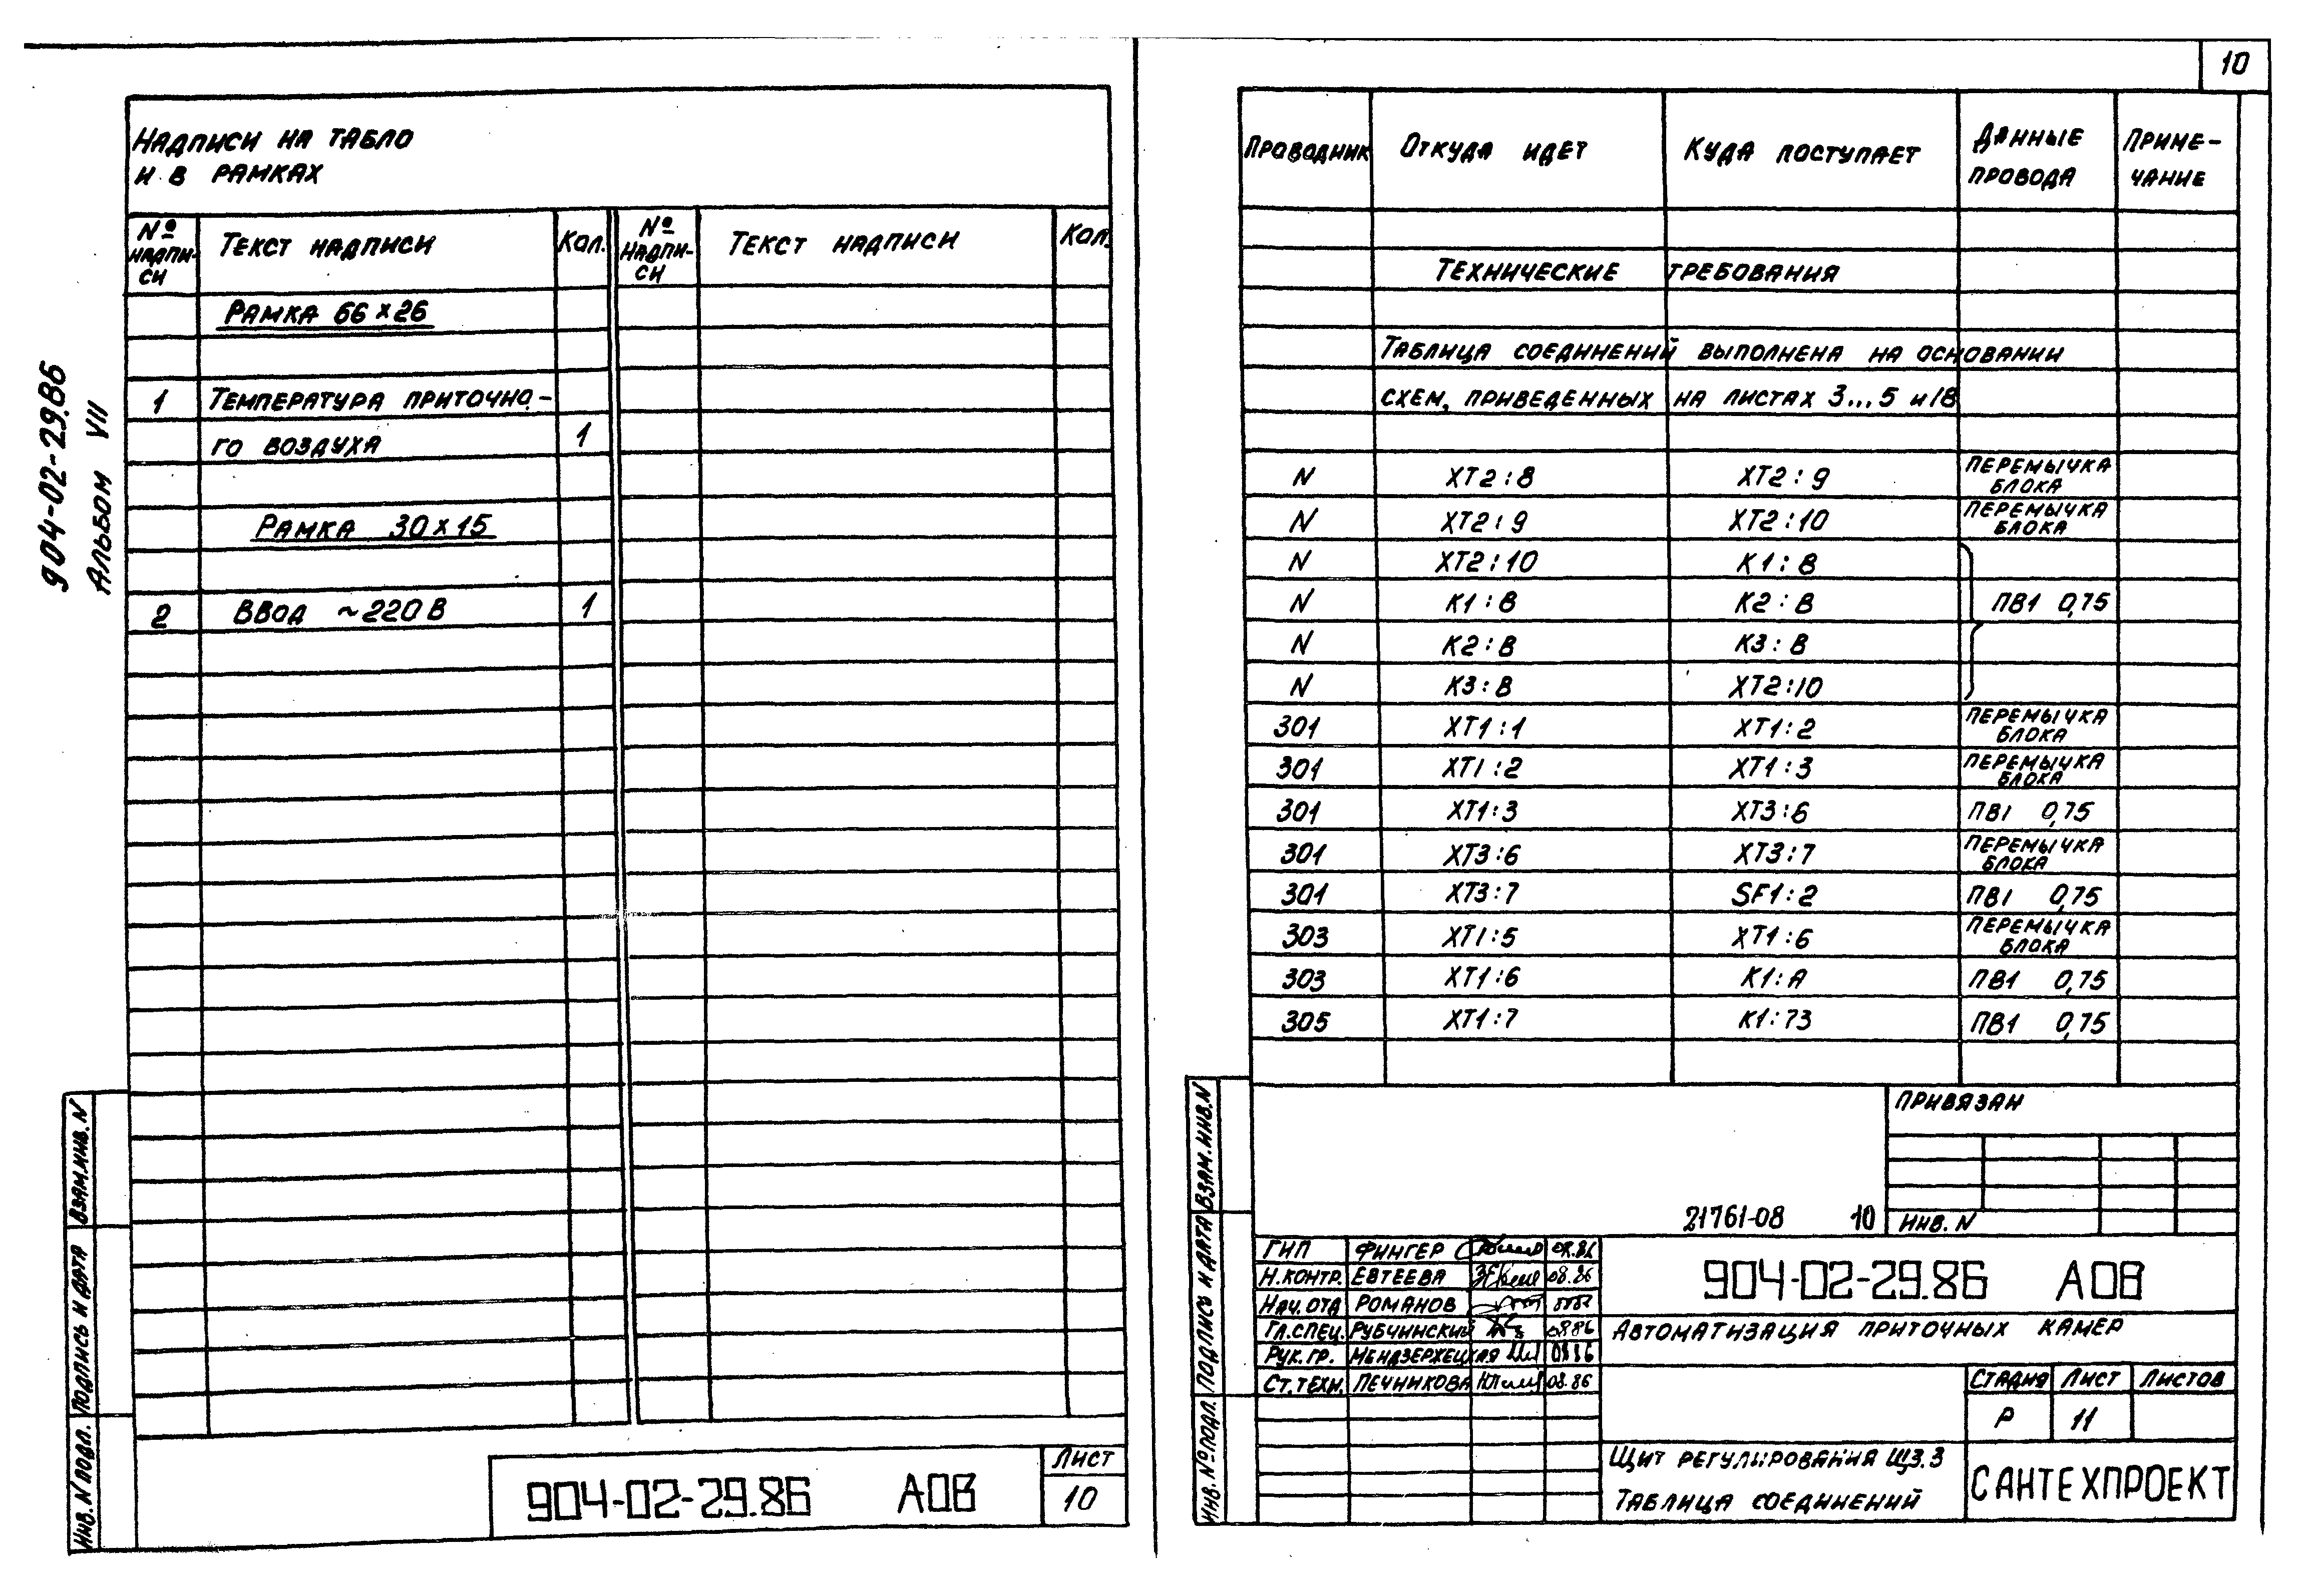 10
904-02-29.86
Альбом VII
Надписи на табло
и в рамках
№ надписи Текст надписи Кол. № надписи Текст надписи Кол.
Рамка 66×26
1 Температура приточно-
го воздуха 1
Рамка 30×15
2 Ввод ~220 В 1
Взам. инв. N
Подпись и дата
Инв. N подл.
904-02-29.86 АОВ
Лист
10
Проводник Откуда идет Куда поступает Данные провода Приме-
чание
Технические требования
Таблица соединений выполнена на основании
схем, приведенных на листах 3...5 и 18
N ХТ2:8 ХТ2:9 Перемычка блока
N ХТ2:9 ХТ2:10 Перемычка блока
N ХТ2:10 К1:В
N К1:В К2:В ПВ1 0,75
N К2:В К3:В
N К3:В ХТ2:10
301 ХТ1:1 ХТ1:2 Перемычка блока
301 ХТ1:2 ХТ1:3 Перемычка блока
301 ХТ1:3 ХТ3:6 ПВ1 0,75
301 ХТ3:6 ХТ3:7 Перемычка блока
301 ХТ3:7 SF1:2 ПВ1 0,75
303 ХТ1:5 ХТ1:6 Перемычка блока
303 ХТ1:6 К1:А ПВ1 0,75
305 ХТ1:7 К1:73 ПВ1 0,75
Привязан
21761-08 10 Инв. N
Взам. инв. N
Подпись и дата
Инв. № подл.
ГИП Фингер 08.86
Н.контр. Евтеева 08.86
Нач. отд Романов
Гл. спец. Рубчинский 08 86
Рук. гр. Мендзержецкая 08 86
Ст. техн. Печникова 08.86
904-02-29.86 АОВ
Автоматизация приточных камер
Стадия Лист Листов
Р 11
Щит регулирования ЩЗ.3
Таблица соединений
САНТЕХПРОЕКТ